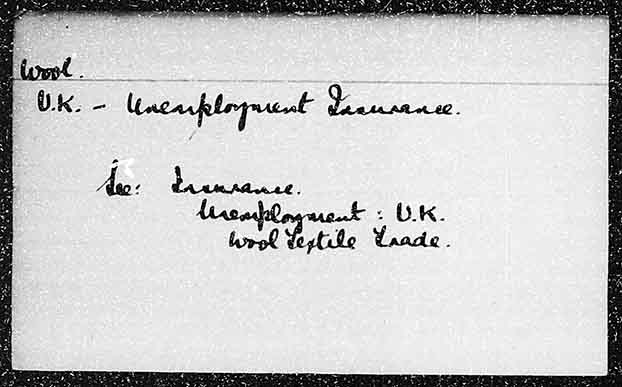 Wool.
U.K. - Unemployment Insurance.
See: Insurance.
Unemployment: U.K.
Wool Textile Trade.